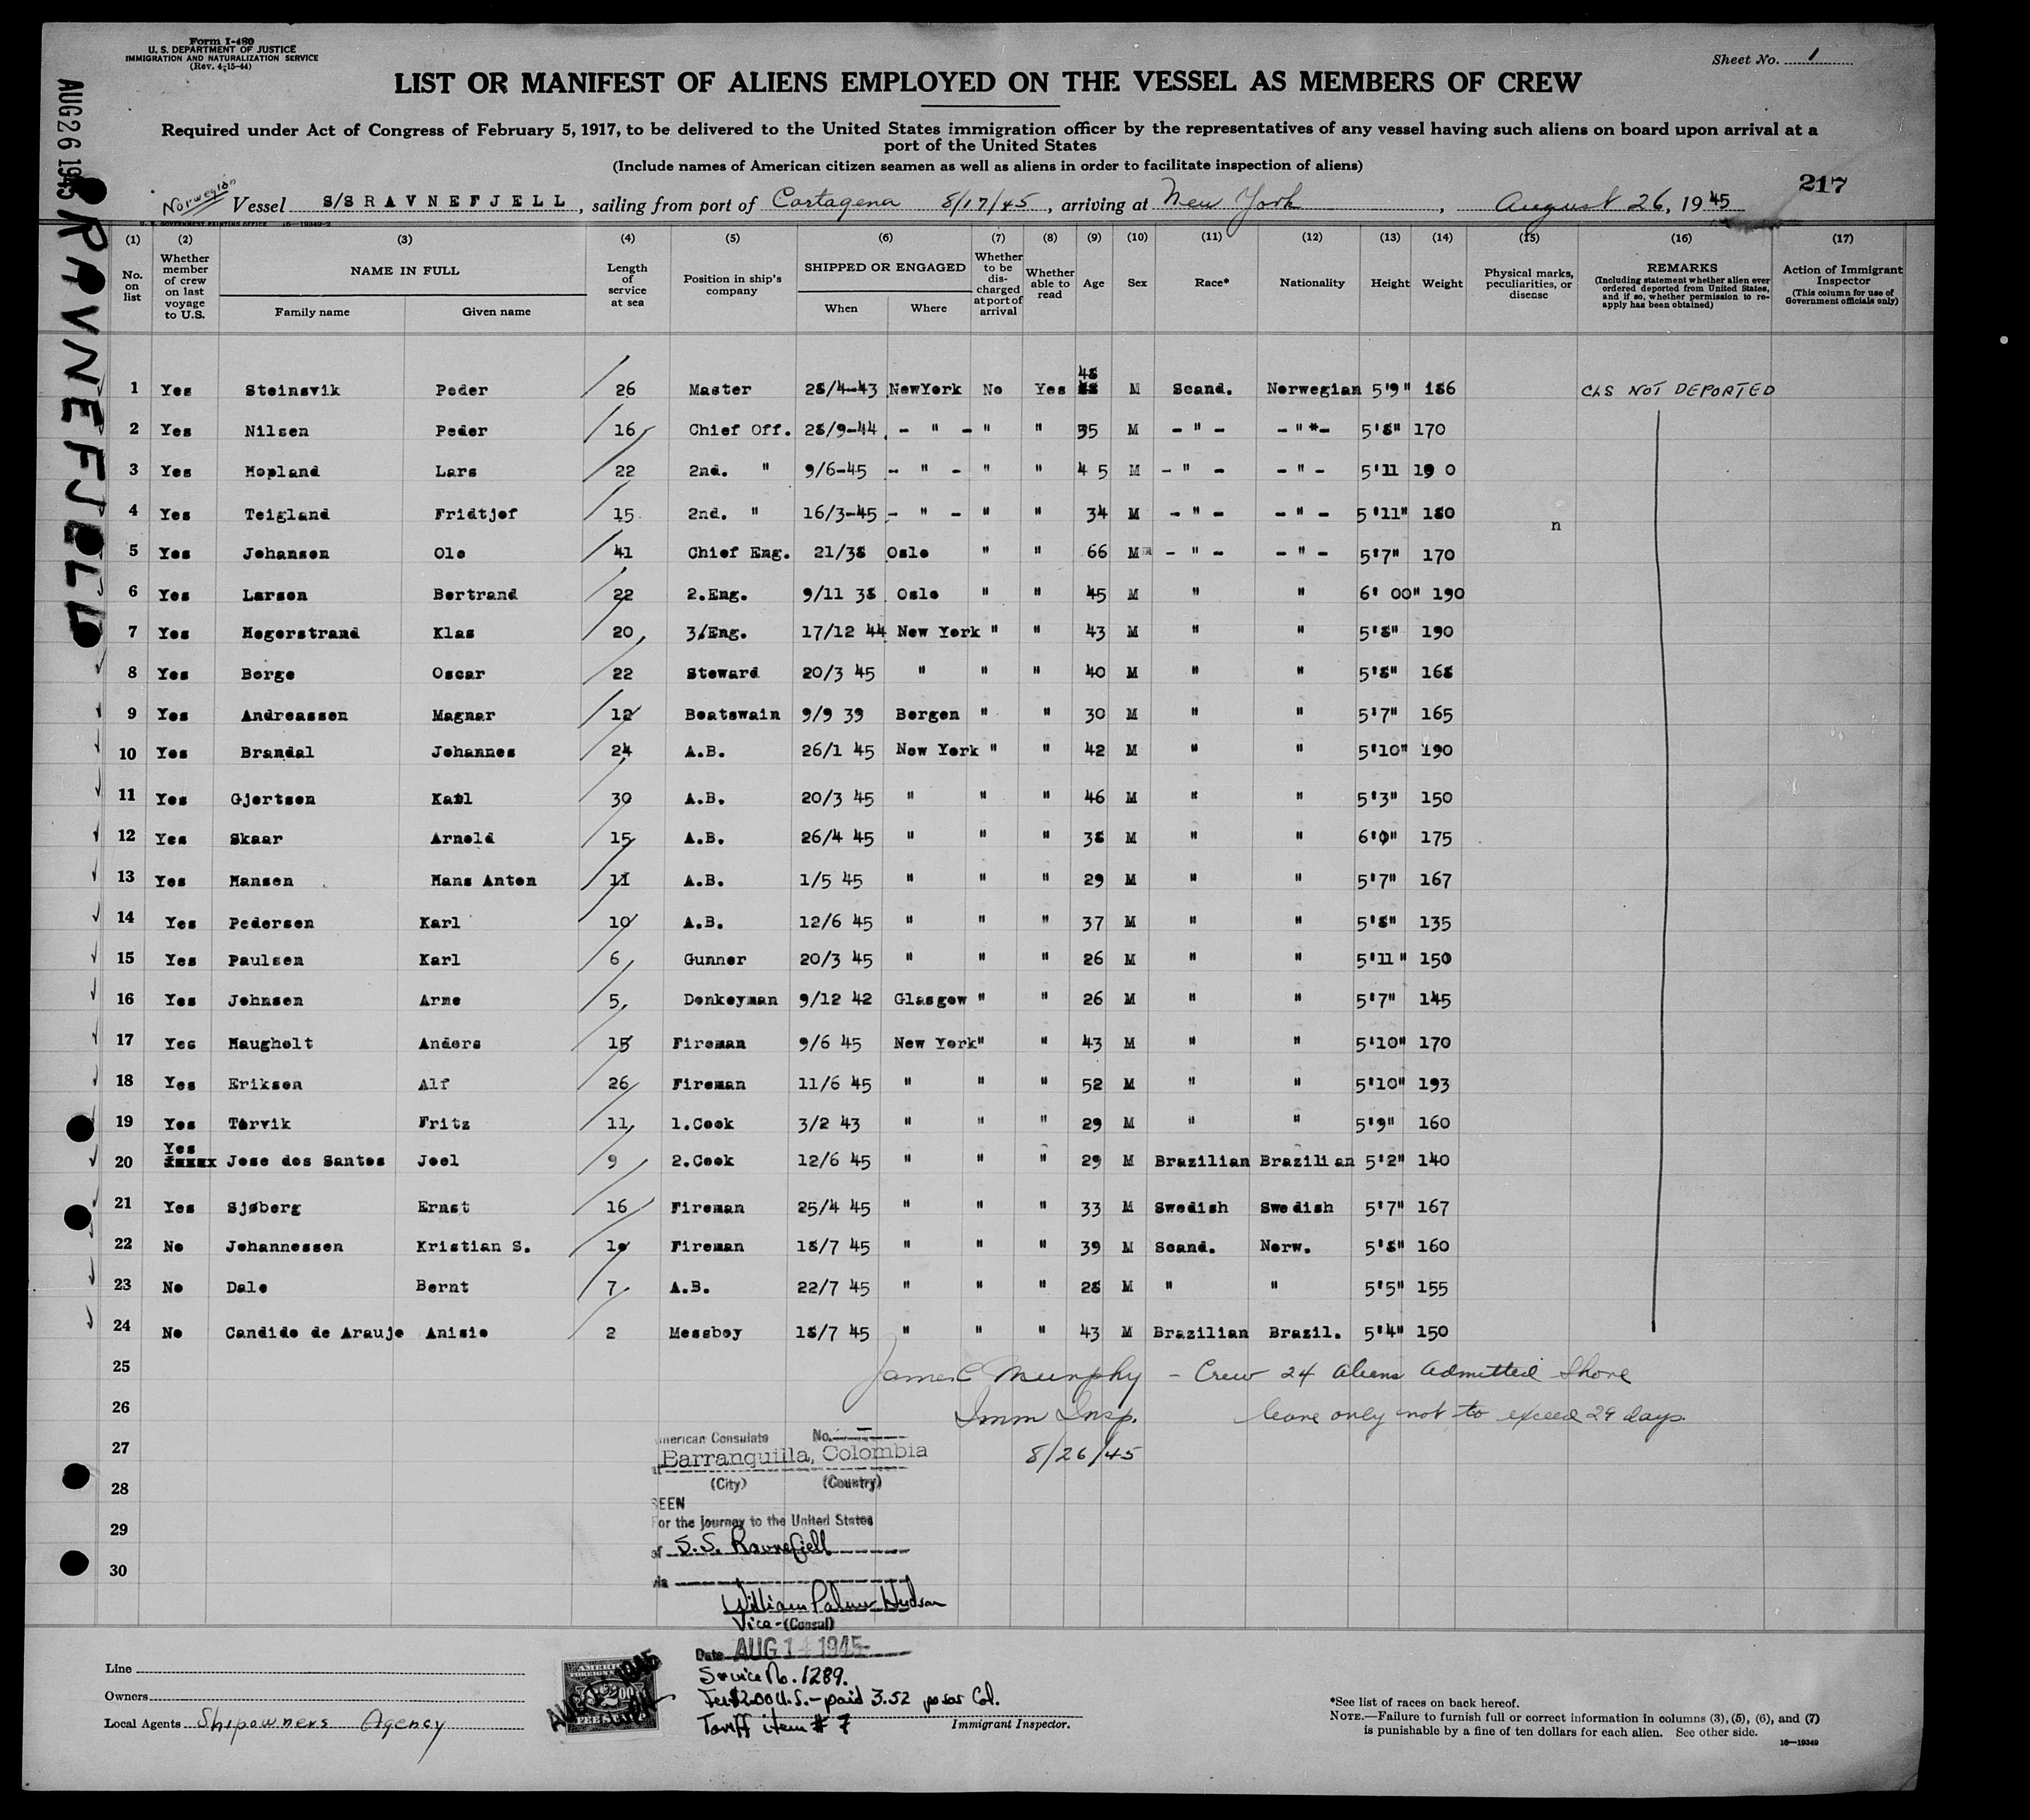 Form I-480
U. S. DEPARTMENT OF JUSTICE
IMMIGRATION AND NATURALIZATION SERVICE
(Rev. 4-15-44)
Sheet No. 1
LIST OR MANIFEST OF ALIENS EMPLOYED ON THE VESSEL AS MEMBERS OF CREW
Required under Act of Congress of February 5, 1917, to be delivered to the United States immigration officer by the representatives of any vessel having such aliens on board upon arrival at a
port of the United States
(Include names of American citizen seamen as well as aliens in order to facilitate inspection of aliens)
217
AUG 26 1945
RAVNEFJELL
Norwegian Vessel S/S RAVNEFJELL, sailing from port of Cartagena 8/17/45, arriving at New York, August 26, 1945
(1) (2) (3) (4) (5) (6) (7) (8) (9) (10) (11) (12) (13) (14) (15) (16) (17)
No. on list
Whether member of crew on last voyage to U.S.
NAME IN FULL
Family name Given name
Length of service at sea
Position in ship's company
SHIPPED OR ENGAGED
When Where
Whether to be discharged at port of arrival
Whether able to read
Age Sex Race* Nationality Height Weight
Physical marks, peculiarities, or disease
REMARKS
(Including statement whether alien ever ordered deported from United States, and if so, whether permission to re-apply has been obtained)
Action of Immigrant Inspector
(This column for use of Government officials only)
1 Yes Steinsvik Peder 26 Master 28/4-43 NewYork No Yes 48 M Scand. Norwegian 5'9" 186 CLS NOT DEPORTED
2 Yes Nilsen Peder 16 Chief Off. 28/9-44 - " - " " 35 M - " - - " - 5'8" 170
3 Yes Hopland Lars 22 2nd. " 9/6-45 - " - " " 45 M - " - - " - 5'11 190
4 Yes Teigland Fridtjof 15 2nd. " 16/3-45 - " - " " 34 M - " - - " - 5'11" 180
n
5 Yes Johansen Ole 41 Chief Eng. 21/38 Oslo " " 66 M - " - - " - 5'7" 170
6 Yes Larsen Bertrand 22 2.Eng. 9/11 38 Oslo " " 45 M " " 6' 00" 190
7 Yes Hegerstrand Klas 20 3/Eng. 17/12 44 New York " " 43 M " " 5'8" 190
8 Yes Borge Oscar 22 Steward 20/3 45 " " " 40 M " " 5'8" 168
9 Yes Andreassen Magnar 12 Boatswain 9/9 39 Bergen " " 30 M " " 5'7" 165
10 Yes Brandal Johannes 24 A.B. 26/1 45 New York " " 42 M " " 5'10" 190
11 Yes Gjertsen Karl 30 A.B. 20/3 45 " " " 46 M " " 5'3" 150
12 Yes Skaar Arnold 15 A.B. 26/4 45 " " " 38 M " " 6'0" 175
13 Yes Hansen Hans Anton 11 A.B. 1/5 45 " " " 29 M " " 5'7" 167
14 Yes Pedersen Karl 10 A.B. 12/6 45 " " " 37 M " " 5'8" 135
15 Yes Paulsen Karl 6 Gunner 20/3 45 " " " 26 M " " 5'11" 150
16 Yes Johnsen Arne 5 Donkeyman 9/12 42 Glasgow " " 26 M " " 5'7" 145
17 Yes Haugholt Anders 15 Fireman 9/6 45 New York " " 43 M " " 5'10" 170
18 Yes Eriksen Alf 26 Fireman 11/6 45 " " " 52 M " " 5'10" 193
19 Yes Torvik Fritz 11 1.Cook 3/2 43 " " " 29 M " " 5'9" 160
20 Yes Jose dos Santos Joel 9 2.Cook 12/6 45 " " " 29 M Brazilian Brazilian 5'2" 140
21 Yes Sjøberg Ernst 16 Fireman 25/4 45 " " " 33 M Swedish Swedish 5'7" 167
22 No Johannessen Kristian S. 10 Fireman 18/7 45 " " " 39 M Scand. Norw. 5'8" 160
23 No Dale Bernt 7 A.B. 22/7 45 " " " 28 M " " 5'5" 155
24 No Candido de Araujo Anisio 2 Messboy 18/7 45 " " " 43 M Brazilian Brazil. 5'4" 150
25 James C Murphy - Crew 24 Aliens Admitted Shore
26 Imm Insp. leave only not to exceed 29 days
27 8/26/45
28
29
30
American Consulate No. -
at Barranquilla, Colombia
(City) (Country)
SEEN
For the journey to the United States
of S.S. Ravnefjell
via
William Palmer Hudson
Vice-(Consul)
Date AUG 14 1945
Service No. 1289.
Fee $2.00 U.S.- paid 3.52 pesos Col.
Tariff item # 7
Immigrant Inspector.
Line
Owners
Local Agents Shipowners Agency
*See list of races on back hereof.
NOTE.—Failure to furnish full or correct information in columns (3), (5), (6), and (7)
is punishable by a fine of ten dollars for each alien. See other side.
16—19349